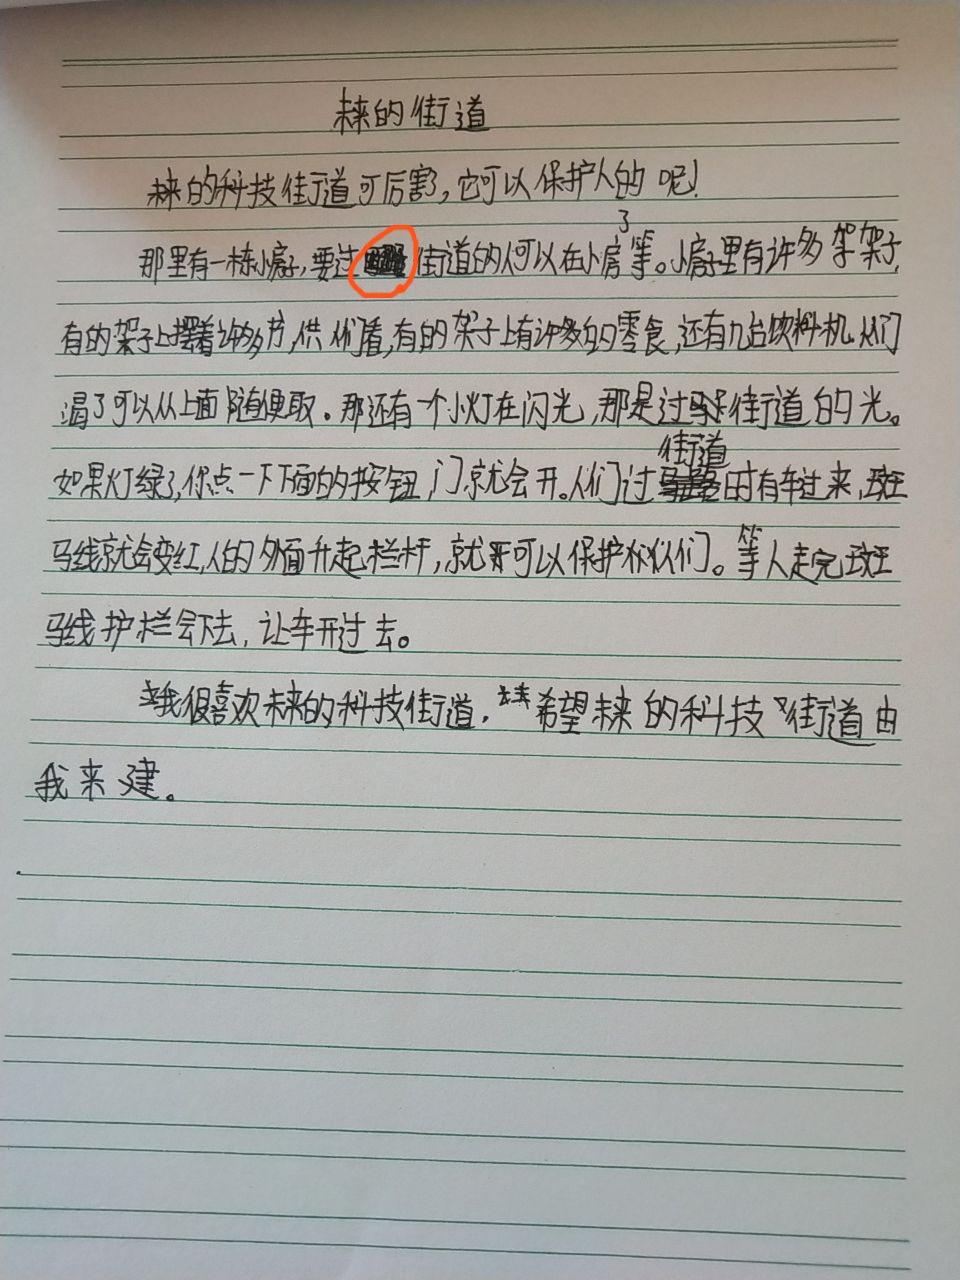 未来的街道
未来的科技街道可厉害了,它可以保护人的呢!
那里有一栋小房子,要过街道的人可以在小房子等。小房子里有许多架子,
有的架子上摆着许多书,供人们看,有的架子上有许多的零食,还有几台饮料机.人们
渴了可以从上面随便取。那还有一个小灯在闪光,那是过街道的光。
如果灯绿了,你点一下下面的按钮,门就会开。人们过街道时有车过来,斑
马线就会变红,人的外面升起栏杆,就可以保护人们。等人走完斑
马线护栏会下去,让车开过去。
我很喜欢未来的科技街道.希望未来的科技街道由
我来建。